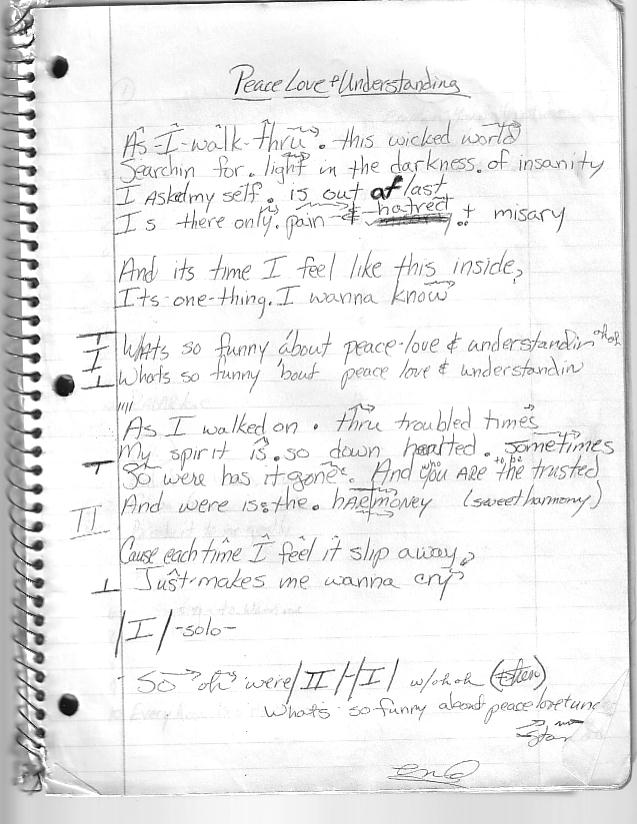 Peace Love + Understanding
As-I-walk-thru. this wicked world
Searchin for. light in the darkness. of insanity
I Asked my self. is out of last
Is there only. pain & hatred + misary
And its time I feel like this inside,
Its-one-thing. I wanna know
I Whats so funny about peace-love & understandin oh oh
Whats so funny 'bout peace love & understandin
As I walked on. thru troubled times
My spirit is. so down hearted. sometimes
So were has it gone. And who ARE the trusted
II And were is the. hARmoney (sweet harmony)
Cause each time I feel it slip away,
Just-makes me wanna cry
|I| -solo-
So oh were |II|-|I| w/oh oh (then)
Whats so funny about peace love + und
Star
end